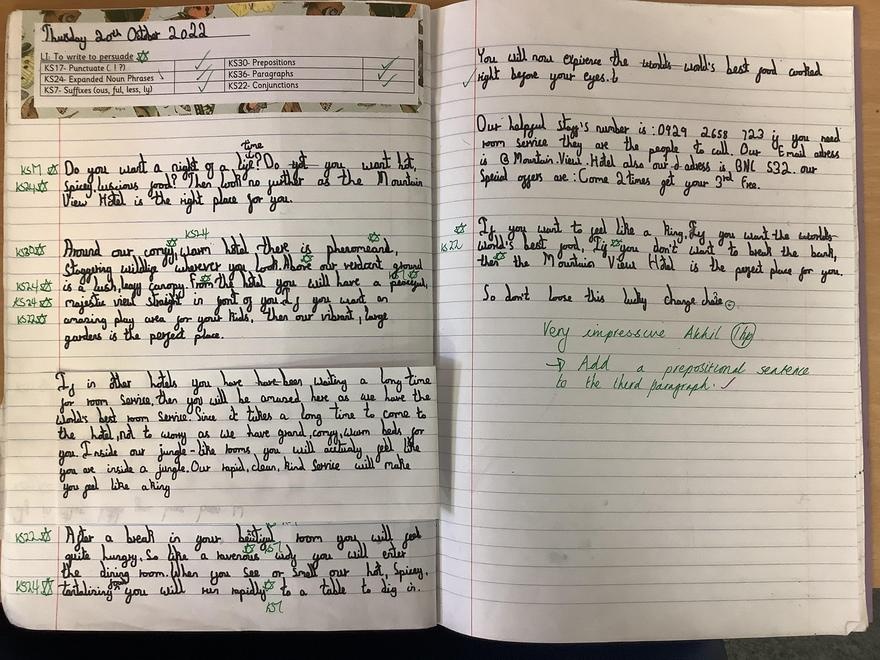 Thursday 20th October 2022
LI: To write to persuade
KS17- Punctuate (. ! ?)
KS30- Prepositions
KS24- Expanded Noun Phrases
KS36- Paragraphs
KS7- Suffixes (ous, ful, less, ly)
KS22- Conjunctions
time
Do you want a night of a life? Do yot you want hot,
KS24 Spicy, luscious food? Then look no further as the Mountain
View Hotel is the right place for you.
KS24
KS30 Around our warm hotel there is
Staggering wildlife wherever you look. Above our verdent ground
KS24 is a lush, leafy canopy. From the hotel you will have a peaceful,
KS24 majestic view straight in front of you. If you want an
KS22 amazing play area for your kids, then our vibrant, large
gardens is the perfect place.
If in other hotels you have have been waiting a long time
for room service, then you will be amused here as we have the
World's best room Service. Since it takes a long time to come to
the hotel, not to worry as we have grand, warm beds for
you. Inside our jungle-like rooms you will feel like
you are inside a jungle. Our rapid, clean, kind Service will make
you feel like a king
KS22 After a break in your room you will feel
KS7
quite hungry. So like a ravenous you will enter
the dining room. When you see or Smell our hot, Spicey,
food
KS24 tantalising you will run rapidly to a table to dig in.
KS7
You will now expirence the worlds world's best food cooked
right before your eyes.
Our helpful Staff's number is : 0929 2658 723 if you need
room service they are the people to call. Our Email adress
is @ Mountain.View.Hotel also our adress is BNL 532. our
Special offers are : Come 2 times get your 3rd Free.
If you want to feel like a king, If you want the worlds
KS22 world's best food, If you don't want to break the bank,
then the Mountain View Hotel is the perfect place for you.
So don't loose this lucky
Very impressive Akhil 1hp
→ Add a prepositional sentence
to the third paragraph.